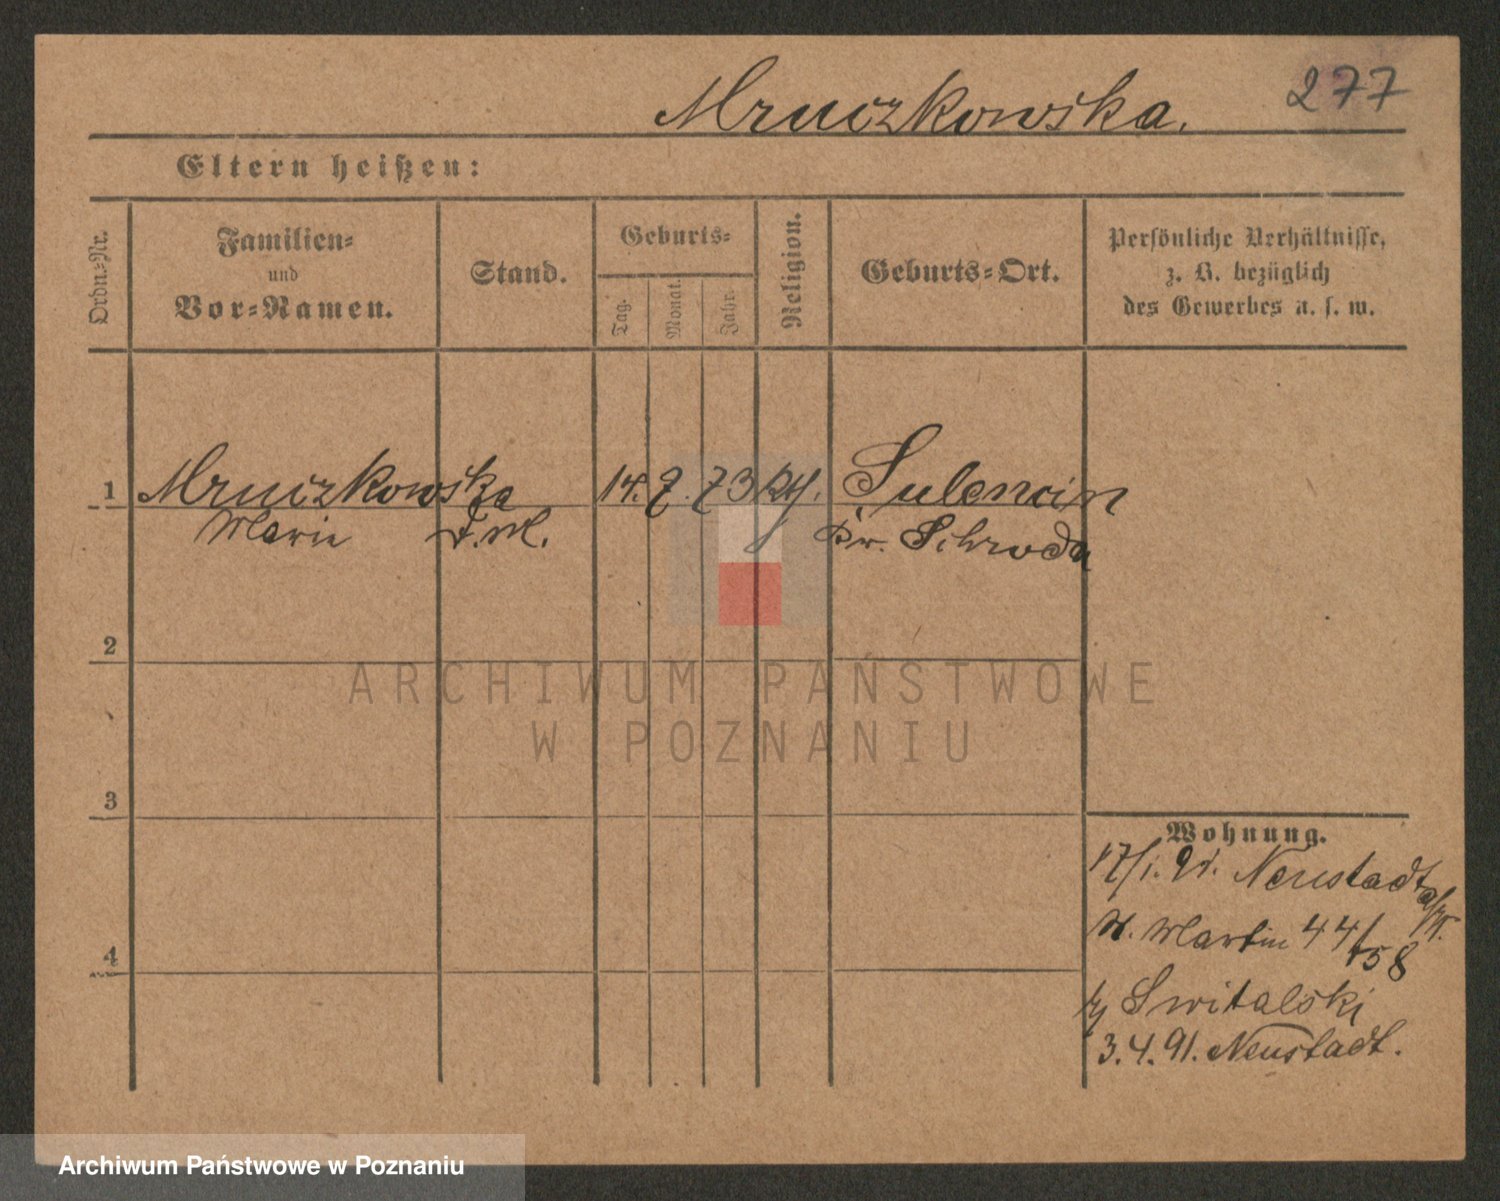 277
Mruczkowska.
Eltern heißen:
Ordn.-Nr.
Familien-
und
Vor-Namen.
Stand.
Geburts-
Tag.
Monat.
Jahr.
Religion.
Geburts-Ort.
Persönliche Verhältnisse,
z. B. bezüglich
des Gewerbes u. s. w.
1 Mruczkowska 14. 2. 73 Sulencin
Marie D.M. Kr. Schroda
2
ARCHIWUM PAŃSTWOWE
W POZNANIU
3
Wohnung.
17/1. 91. Neustadt
St. Martin 44/58
Switalski
4
3. 4. 91. Neustadt.
Archiwum Państwowe w Poznaniu